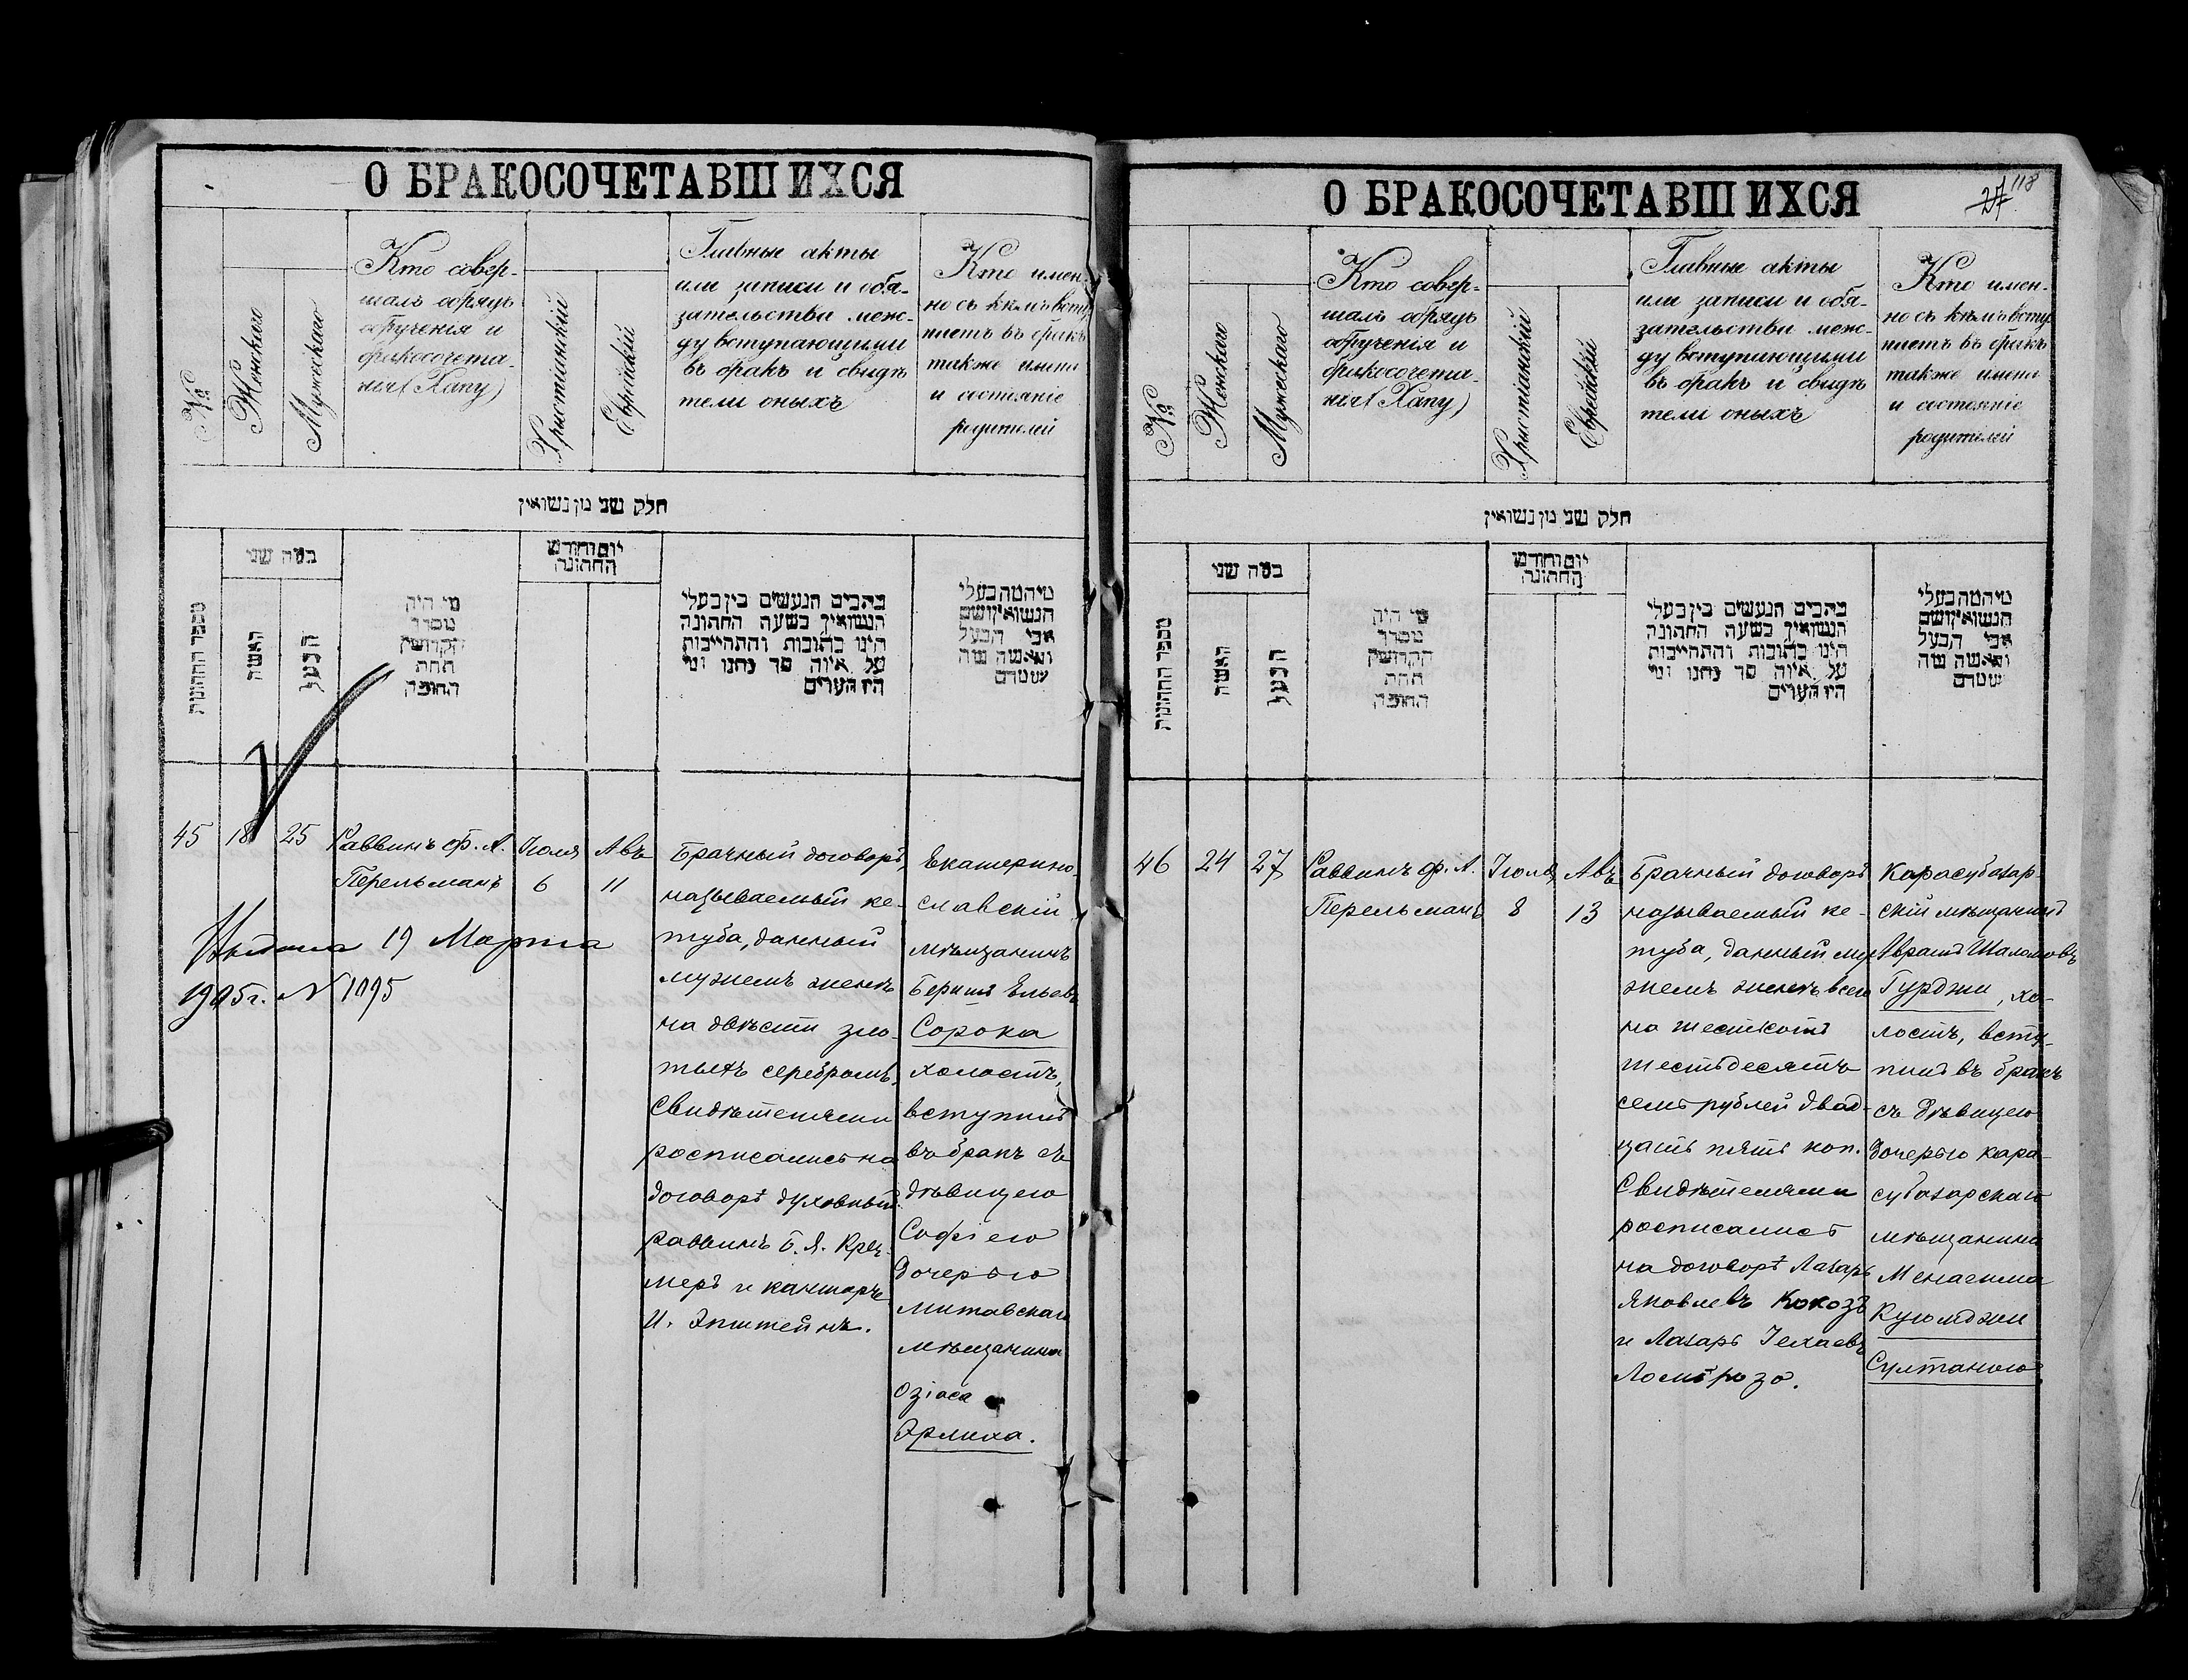 О БРАКОСОЧЕТАВШИХСЯ
№
Женскаго
Мужескаго
Кто совер-
шалъ обрядъ
обрученія и
бракосочета-
нія (Хапу)
Христіанскій
Еврейскій
Главные акты
или записи и обя-
зательства меж-
ду вступающими
въ бракъ и свидѣ
тели оныхъ
Кто имен-
но съ кѣмъ всту
паетъ въ бракъ
также имена
и состояніе
родителей
חלק שני מן נשואין
מספר החתונות
כמה שני
האשה
הבעל
מי היה
מסדר
הקדושין
תחת
החופה
יום וחודש
החתונה
כתבים הנעשים בין בעלי
הנשואין בשעה החתונה
היינו כתובות והתחייבות
על איזה סך נתנו ומי
היו העדים
מי המה בעלי
הנשואין ושם
אבי הבעל
והאשה מה
שמדם
45
18
25
Раввинъ Ф. А.
Перельманъ
Іюля
6
Авъ
11
Брачный договоръ,
называемый ке-
туба, данный
мужемъ женѣ
на двѣсти зло-
тыхъ серебромъ.
Свидѣтелями
росписались на
договорѣ духовный
раввинъ Б. Я. Крей-
меръ и канторъ
И. Эпштейнъ.
Екатерино-
славскій
мѣщанинъ
Беришъ Ельевъ
Сорока
холостъ,
вступилъ
въ бракъ съ
дѣвицею
Софіею
дочерью
митавскаго
мѣщанина
Озіаса
Эрлиха.
Выдана 19 Марта
1905 г. N 1095
О БРАКОСОЧЕТАВШИХСЯ
27 118
№
Женскаго
Мужескаго
Кто совер-
шалъ обрядъ
обрученія и
бракосочета-
нія (Хапу)
Христіанскій
Еврейскій
Главные акты
или записи и обя-
зательства меж-
ду вступающими
въ бракъ и свидѣ
тели оныхъ
Кто имен-
но съ кѣмъ всту
паетъ въ бракъ
также имена
и состояніе
родителей
חלק שני מן נשואין
מספר החתונות
כמה שני
האשה
הבעל
מי היה
מסדר
הקדושין
תחת
החופה
יום וחודש
החתונה
כתבים הנעשים בין בעלי
הנשואין בשעה החתונה
היינו כתובות והתחייבות
על איזה סך נתנו ומי
היו העדים
מי המה בעלי
הנשואין ושם
אבי הבעל
והאשה מה
שמדם
46
24
27
Раввинъ Ф. А.
Перельманъ
Іюля
8
Авъ
13
Брачный договоръ
называемый ке-
туба, данный му
жемъ женѣ всего
на шестьсотъ
шестьдесятъ
семь рублей двад-
цать пять коп.
Свидѣтелями
росписались
на договорѣ Лазарь
Яковлевъ Кокозъ
и Лазарь
Ломброзо.
Карасубазар-
скій мѣщанинъ
Аврамъ Шаломовъ
Гурджи, хо-
лостъ, всту-
пилъ въ бракъ
съ дѣвицею
дочерью кара-
субазарскаго
мѣщанина
Менахима
Куюмджи
Султаною.